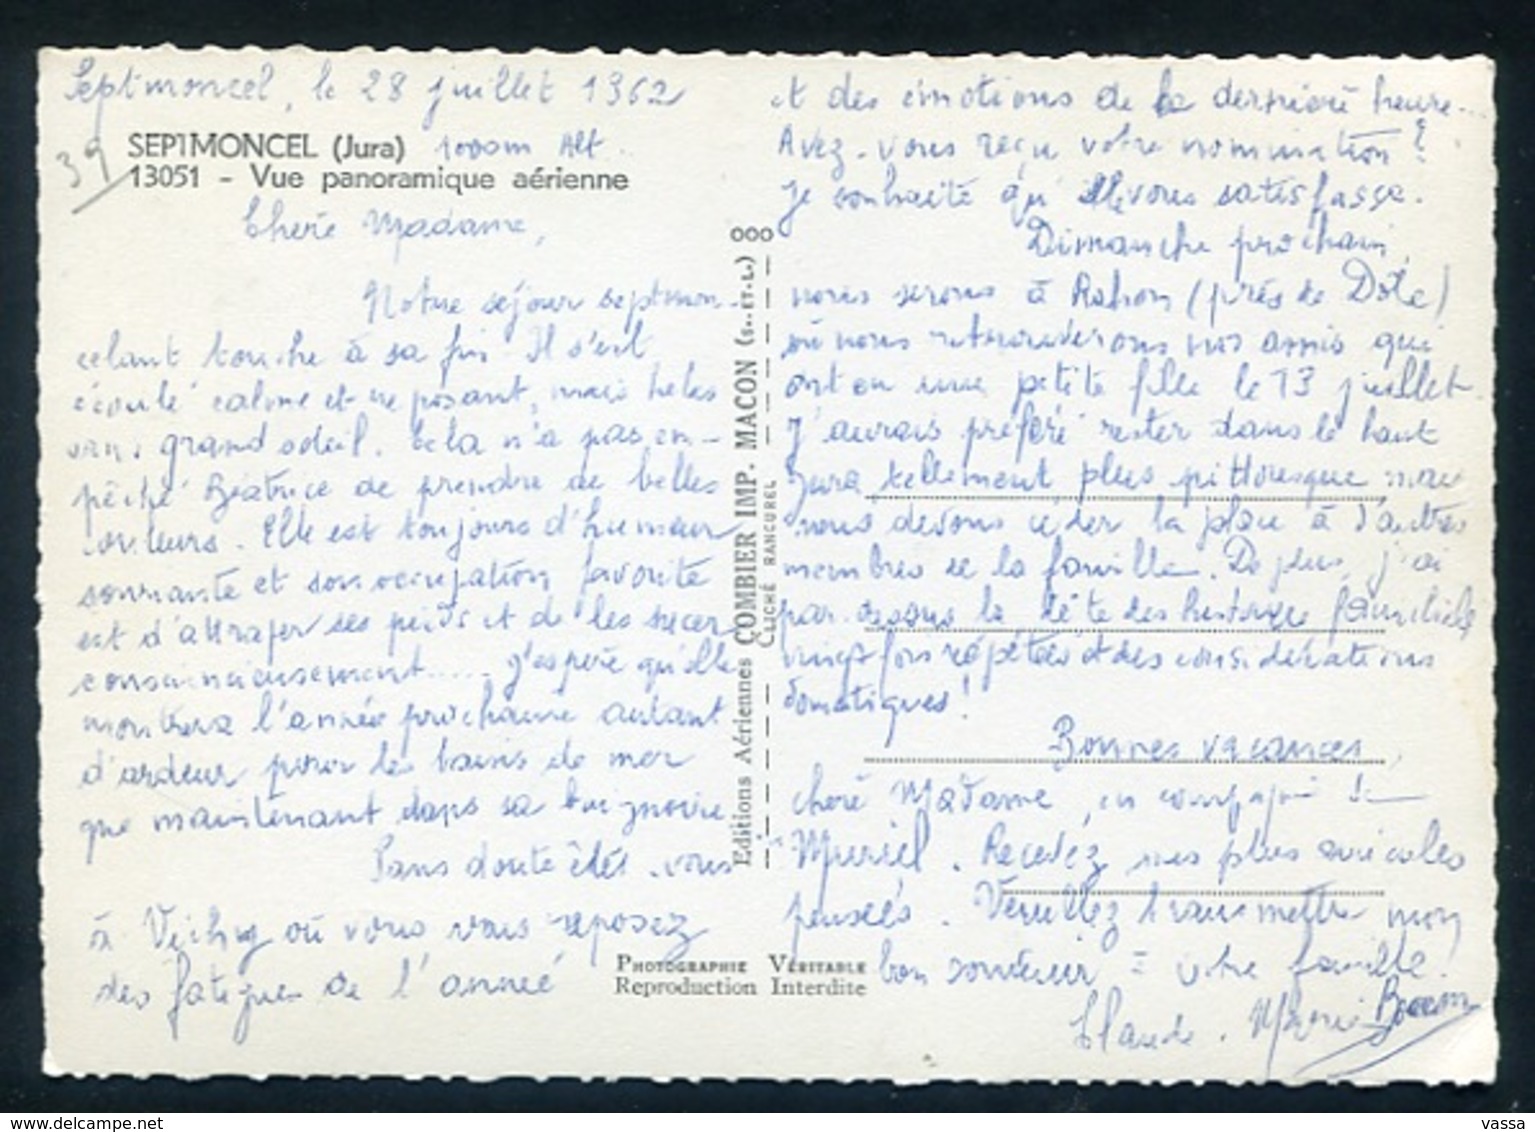 Septmoncel, le 28 juillet 1962
39
SEPTMONCEL (Jura) 1000m Alt.
13051 - Vue panoramique aérienne
Chère Madame,
Notre séjour septmon-
celant touche à sa fin. Il s'est
écoulé calme et reposant, mais hélas
sans grand soleil. Cela n'a pas em-
pêché Béatrice de prendre de belles
couleurs. Elle est toujours d'humeur
souriante et son occupation favorite
est d'attraper ses pieds et de les sucer
consciencieusement..... J'espère qu'elle
montrera l'année prochaine autant
d'ardeur pour les bains de mer
que maintenant dans sa baignoire
Sans doute êtes-vous
à Vichy où vous vous reposez
des fatigues de l'année
et des émotions de la dernière heure...
Avez-vous reçu votre nomination ?
Je souhaite qu'elle vous satisfasse.
Dimanche prochain,
nous serons à Rahon (près de Dole)
où nous retrouverons nos amis qui
ont eu une petite fille le 13 juillet.
J'aurais préféré rester dans le haut
Jura tellement plus pittoresque mais
nous devons céder la place à d'autres
membres de la famille. De plus, j'ai
par-dessus la tête des histoires familiales
vingt fois répétées et des considérations
domestiques !
Bonnes vacances,
chère Madame, en compagnie de
Muriel. Recevez nos plus amicales
pensées. Veuillez transmettre mon
bon souvenir à votre famille.
Claude. Marie Boccon
OOO
Editions Aériennes COMBIER IMP. MACON (S.-ET-L.)
CLICHÉ RANCUREL
PHOTOGRAPHIE VÉRITABLE
Reproduction Interdite
delcampe.net
vassa